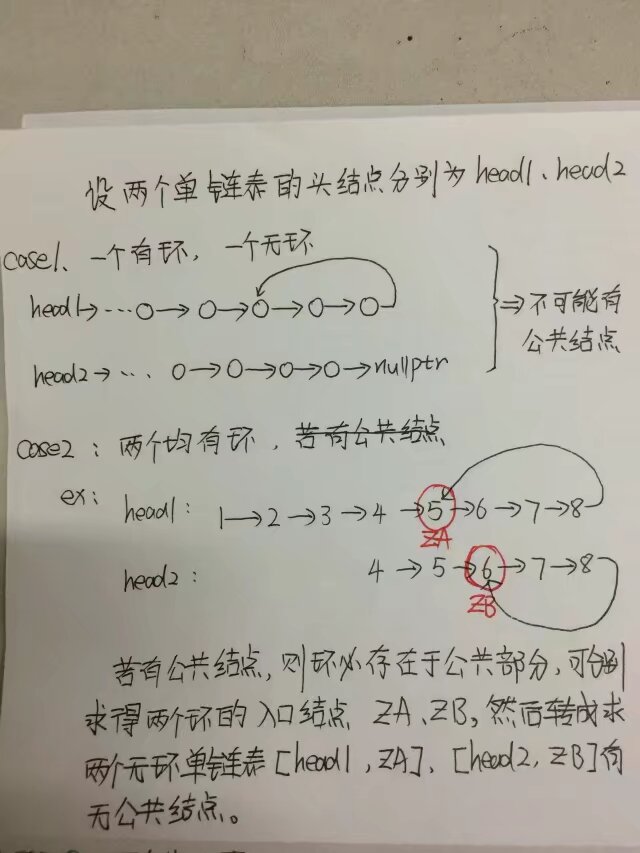 设两个单链表的头结点分别为head1、head2
case1、一个有环，一个无环
head1→…○→○→○→○→○
⇒不可能有
公共结点
head2→…○→○→○→○→nullptr
case2：两个均有环，若有公共结点
ex：head1：1→2→3→4→5→6→7→8
ZA
head2：4→5→6→7→8
ZB
若有公共结点，则环必存在于公共部分，可分别
求得两个环的入口结点 ZA、ZB，然后转成求
两个无环单链表[head1，ZA]、[head2，ZB]有
无公共结点。